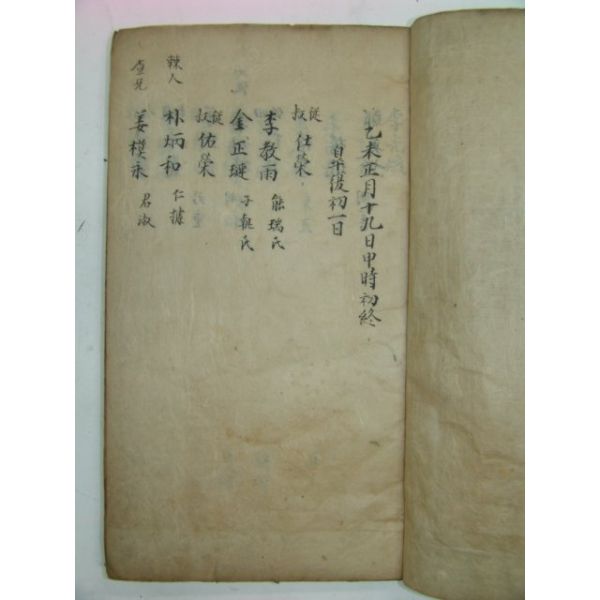 乙未正月十九日甲時初終
自午後初一日
從叔仕榮
李敎雨 能瑞氏
金正璉 子興氏
從叔佑榮
棘人 朴炳和 仁據
查兄 姜模永 君淑